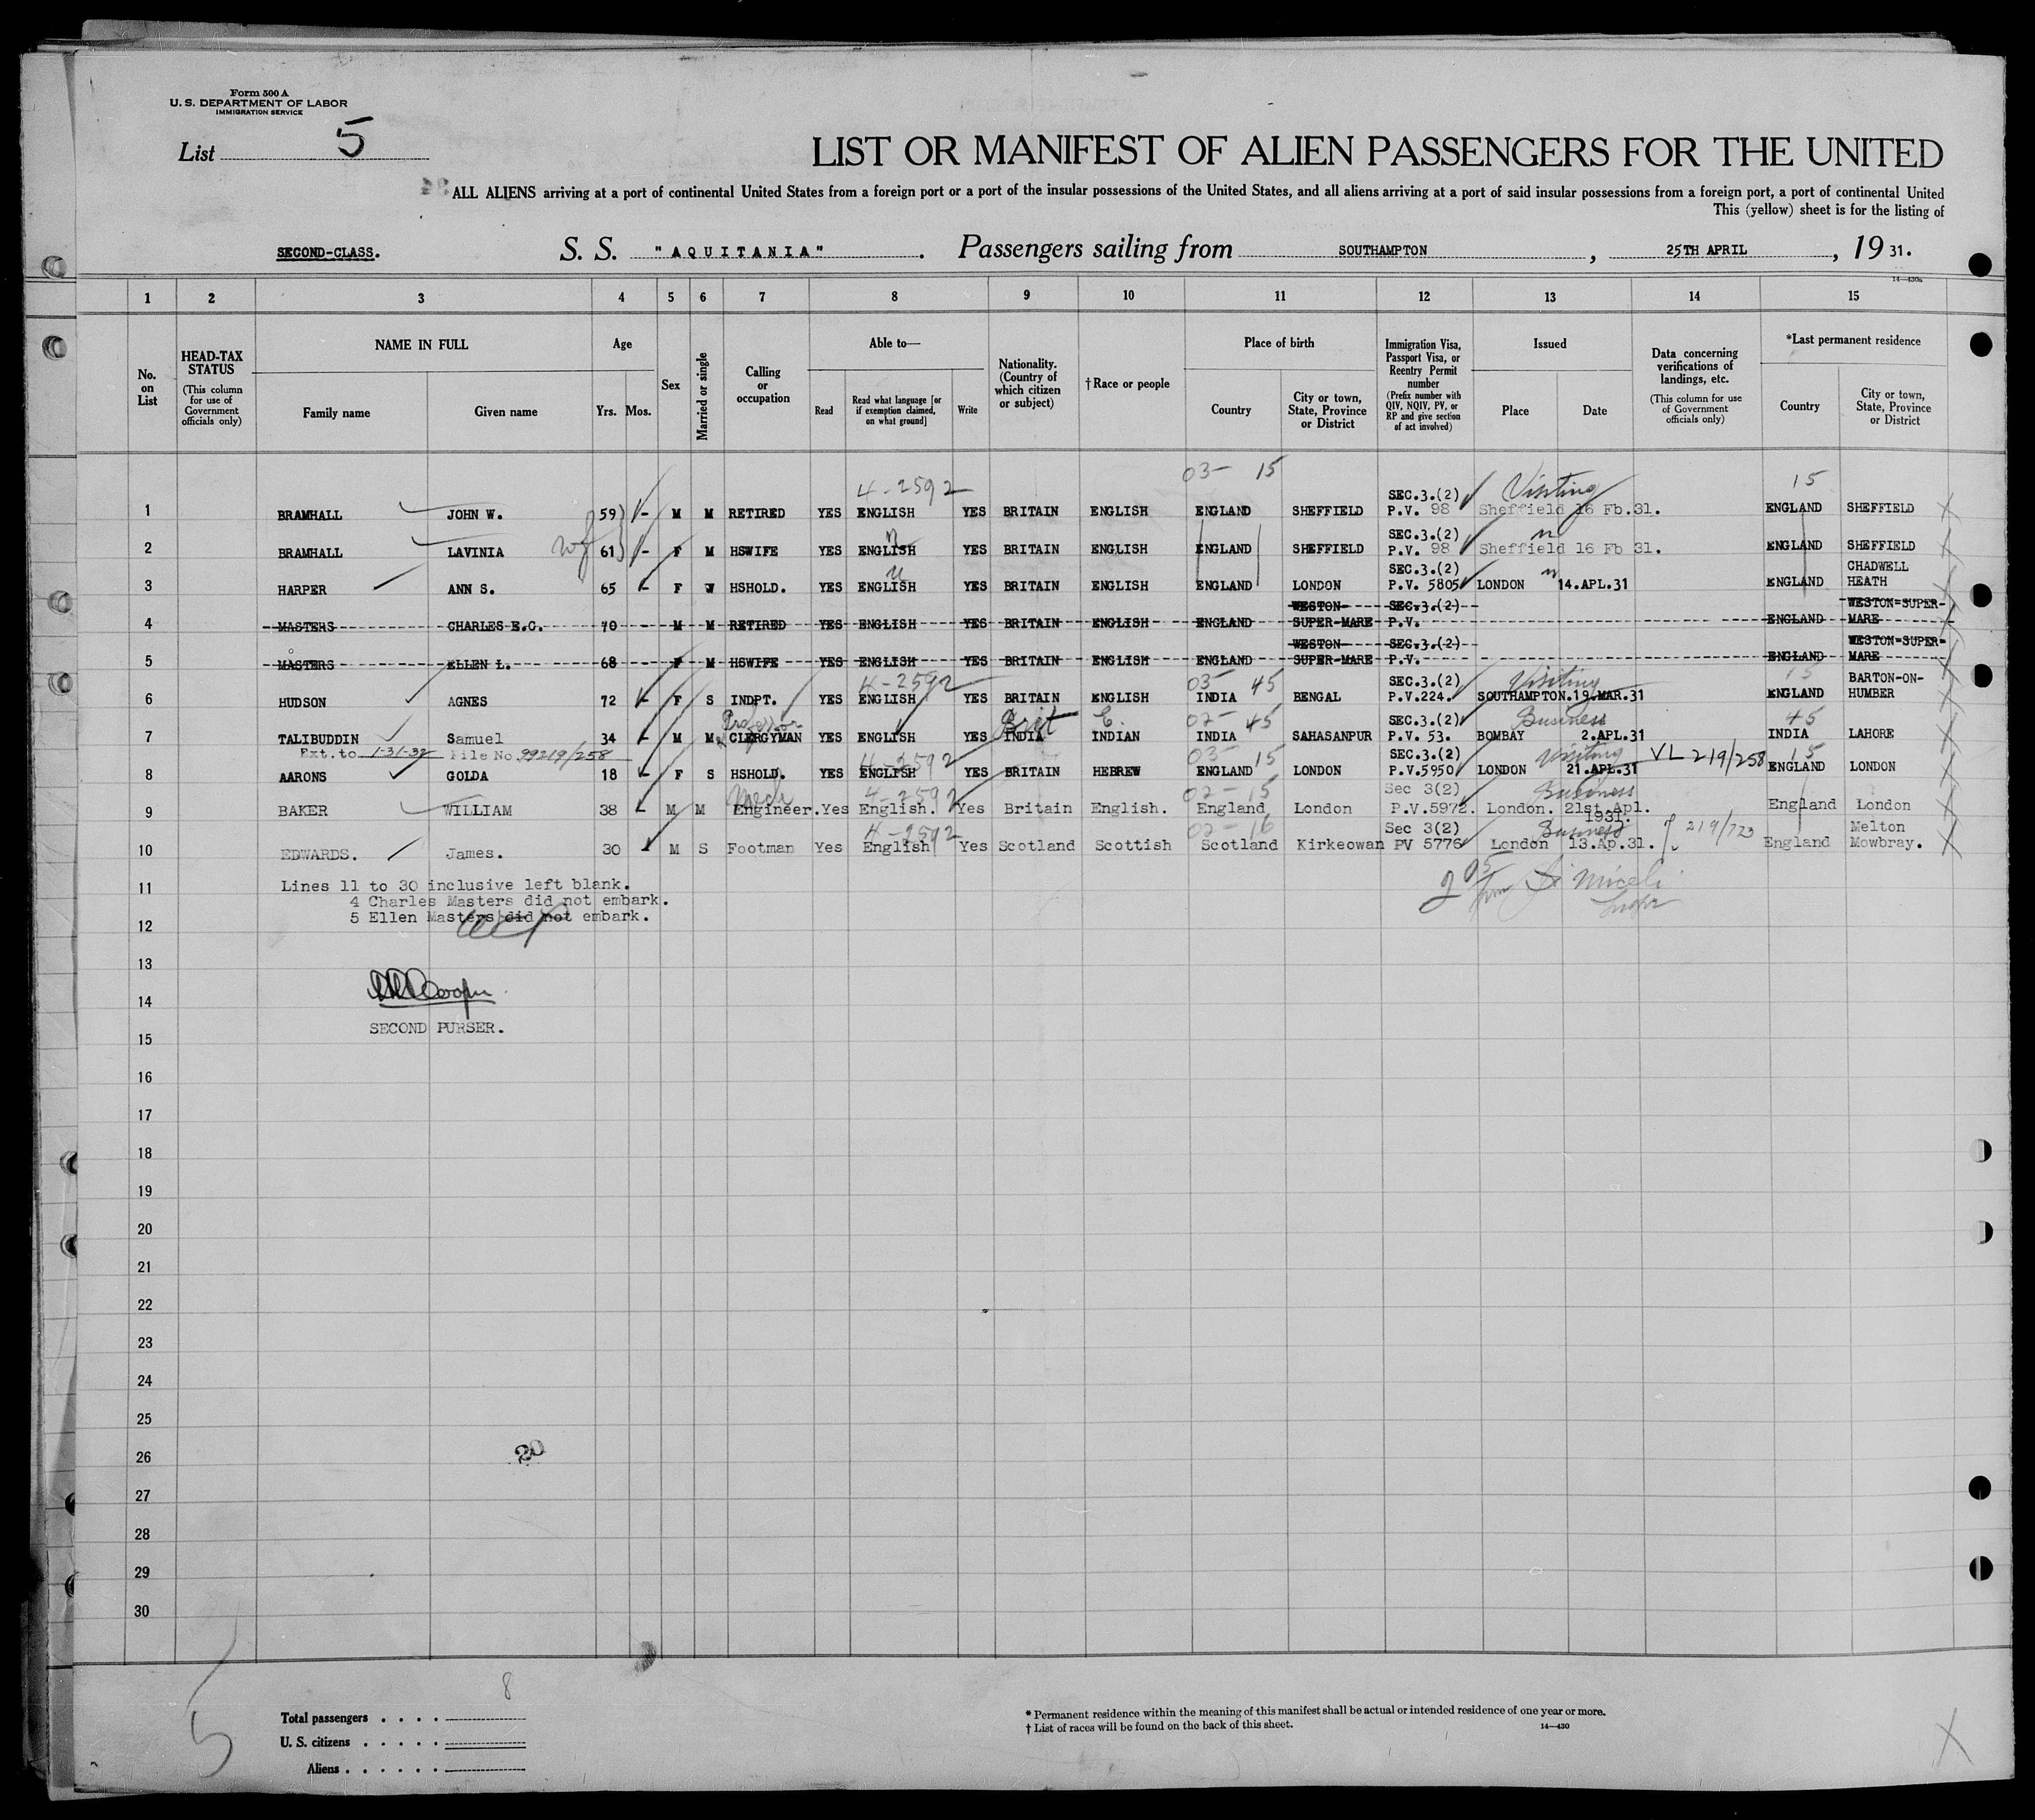 Form 500 A
U. S. DEPARTMENT OF LABOR
IMMIGRATION SERVICE
List 5
LIST OR MANIFEST OF ALIEN PASSENGERS FOR THE UNITED
ALL ALIENS arriving at a port of continental United States from a foreign port or a port of the insular possessions of the United States, and all aliens arriving at a port of said insular possessions from a foreign port, a port of continental United
This (yellow) sheet is for the listing of
SECOND-CLASS. S. S. "AQUITANIA". Passengers sailing from SOUTHAMPTON, 25TH APRIL, 19 31.
14—430a
1 2 3 4 5 6 7 8 9 10 11 12 13 14 15
No. on List
HEAD-TAX STATUS (This column for use of Government officials only)
NAME IN FULL Family name Given name
Age Yrs. Mos.
Sex
Married or single
Calling or occupation
Able to— Read Read what language [or if exemption claimed, on what ground] Write
Nationality. (Country of which citizen or subject)
† Race or people
Place of birth Country City or town, State, Province or District
Immigration Visa, Passport Visa, or Reentry Permit number (Prefix number with QIV, NQIV, PV, or RP and give section of act involved)
Issued Place Date
Data concerning verifications of landings, etc. (This column for use of Government officials only)
*Last permanent residence Country City or town, State, Province or District
4-2592 03- 15 Visiting 15
1 BRAMHALL JOHN W. 59 - M M RETIRED YES ENGLISH YES BRITAIN ENGLISH ENGLAND SHEFFIELD SEC.3.(2) P.V. 98 Sheffield 16 Fb.31. ENGLAND SHEFFIELD
2 BRAMHALL LAVINIA wf 61 - F M HSWIFE YES ENGLISH YES BRITAIN ENGLISH ENGLAND SHEFFIELD SEC.3.(2) P.V. 98 Sheffield 16 Fb 31. ENGLAND SHEFFIELD
3 HARPER ANN S. 65 - F W HSHOLD. YES ENGLISH YES BRITAIN ENGLISH ENGLAND LONDON SEC.3.(2) P.V. 5805 LONDON 14.APL.31 ENGLAND CHADWELL HEATH
4 MASTERS CHARLES E.C. 70 - M M RETIRED YES ENGLISH YES BRITAIN ENGLISH ENGLAND WESTON SUPER-MARE SEC.3.(2) P.V. ENGLAND WESTON=SUPER-MARE
5 MASTERS ELLEN L. 68 F M HSWIFE YES ENGLISH YES BRITAIN ENGLISH ENGLAND WESTON SUPER-MARE SEC.3.(2) P.V. ENGLAND WESTON=SUPER-MARE
4-2592 03- 45 Visiting 15
6 HUDSON AGNES 72 - F S INDPT. YES ENGLISH YES BRITAIN ENGLISH INDIA BENGAL SEC.3.(2) P.V.224. SOUTHAMPTON.19.MAR.31 ENGLAND BARTON-ON-HUMBER
Professor Brit E. 02- 45 Business 45
7 TALIBUDDIN Samuel 34 - M M CLERGYMAN YES ENGLISH YES INDIA INDIAN INDIA SAHASANPUR SEC.3.(2) P.V. 53. BOMBAY 2.APL.31 INDIA LAHORE
Ext. to 1-31-32 File No. 99219/258
4-2592 03- 15 Visiting VL 219/258 15
8 AARONS GOLDA 18 - F S HSHOLD. YES ENGLISH YES BRITAIN HEBREW ENGLAND LONDON SEC.3.(2) P.V.5950 LONDON 21.APL.31 ENGLAND LONDON
Mech 4-2592 02-15 Business
9 BAKER WILLIAM 38 - M M Engineer. Yes English. Yes Britain English. England London Sec 3(2) P.V.5972. London. 21st.Apl. 1931. England London
4-2592 02-16 Business 219/723
10 EDWARDS. James. 30 - M S Footman Yes English Yes Scotland Scottish Scotland Kirkeowan Sec 3(2) PV 5776 London 13.Ap.31. England Melton Mowbray.
11 Lines 11 to 30 inclusive left blank.
4 Charles Masters did not embark.
12 5 Ellen Masters did not embark.
13
14
SECOND PURSER.
15
16
17
18
19
20
21
22
23
24
25
26 20
27
28
29
30
5
8
Total passengers
U. S. citizens
Aliens
* Permanent residence within the meaning of this manifest shall be actual or intended residence of one year or more.
† List of races will be found on the back of this sheet.
14—430